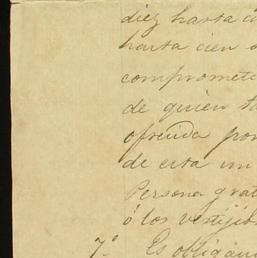 diez hasta
hasta cien
compromete
de quien
ofrecida por
de esta un
Persona grat
ó los vestijio
7º Es obligan